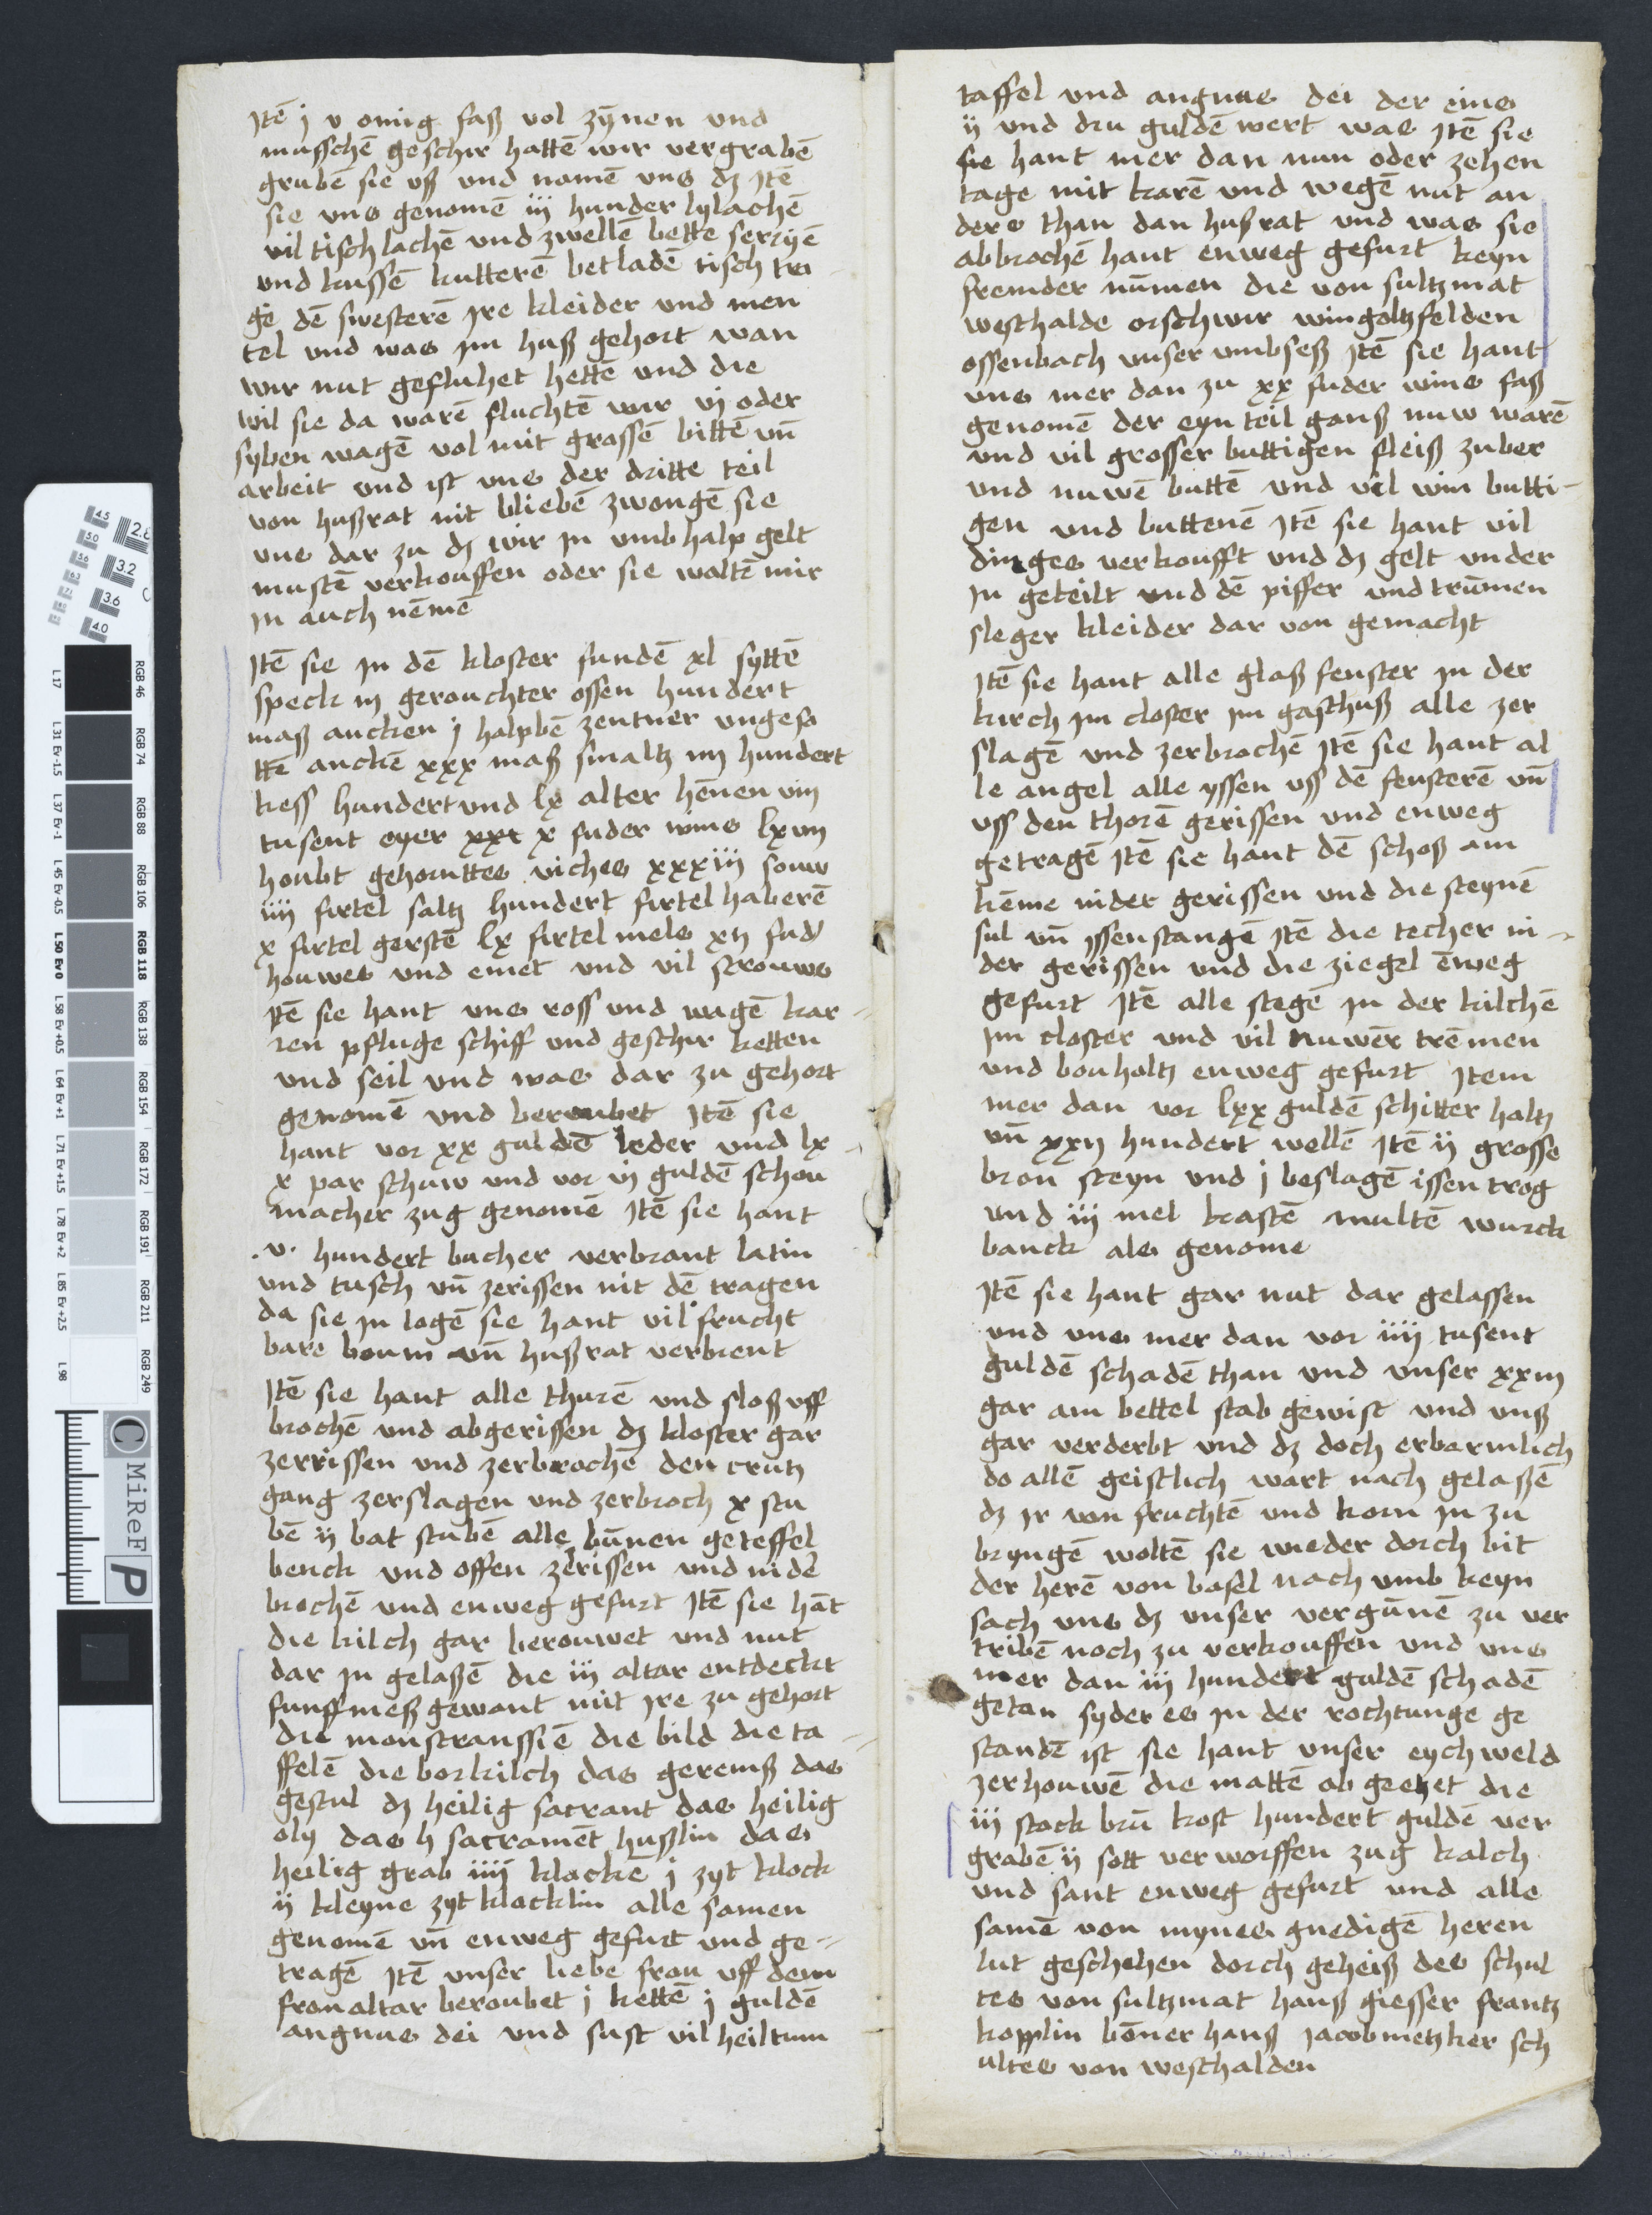 Jtē j v omig faß vol zÿnen und
musschē geschir hattē wir vergrabē
grubē sie uß und nomē uns dz Jtē
sie uns genomē iij hunder lylachē
vil tisch lachē und zwellē bette serzyē
und kussē kutterē betladē tisch tro
gē dē swesterē Jre kleider und men
tel und was Jm huß gehort wan
wir nut gefluhet hettē und die
wil sie da warē fluchtē wir vj oder
syben wagē vol mit grossē bittē uñ
arbeit und ist uns der dritte teil
von hußrat nit bliebē zwongē sie
uns dar zu dz wir Jn umb halp gelt
mustē verkouffen oder sie waltē mir
Jn auch nēmē
Jtē sie Jn dē kloster fundē xl syttē
speck iij gerouchter ossen hundert
maß ancken j halpbē zentner ungeso
ttē anckē xxx maß smaltz iiij hundert
kess hundert und lx alter hēnen viij
tusent eyer x fuder wins lxviij
houbt gehornttes viches xxxiij souw
iiij firtel saltz hundert firtel haberē
x firtel gerstē lx firtel mels xij fud
houwes und emet und vil strouws
Jtē sie hant uns ross und wagē kar
ren pfluge schiff und geschir ketten
und seil und was dar zu gehort
genomē und beroubet Jtē sie
hant vor xx guldē leder und lx
x par schuw und vor vj guldē schou
macher zug genomē Jtē sie hant
.v. hundert bucher verbrant latin
und tusch uñ zerissen mit dē tragen
da sie Jn logē sie hant vil frucht
bare boum uñ hußrat verbrent
Jtē sie hant alle thurē und sloß uff
brochē und abgerissen dz kloster gar
zerrissen und zerbrochē den crutz
gang zerslagen und zerbroch x stu
bē ij bat stubē alle būnen geteffel
benck und offen zerissen und nidē
brochē und enweg gefurt Jtē sie hāt
die kilch gar berouwet und nut
dar Jn gelaßē die iij altar entdeckt
funff meß gewant mit Jre zu gehort
die monstranssiē die bild die ta
ffelē die borkilch das geremß das
gestul dz heilig sacrant das heilig
oly das h sacramēt hußlin das
heilig grab iiij klockē j zyt klock
ij kleyne zyt klocklin alle samen
genomē uñ enweg gefurt und ge
tragē Jtē unser liebe frou uff dem
fronaltar beroubet j kettē j guldē
angnus dei und sust vil heiltum
taffel und angnus dei der eins
ij und dru guldē wert was Jtē sie
sie hant mer dan nun oder zehen
tage mit karē und wegē nut an
ders than dan husrat und was sie
abbrochē hant enweg gefurt keyn
fremder nūmen die von sultzmat
westhalde orschwir wingoltzfelden
ossenbach unser umbseß Jtē sie hant
uns mer dan zu xx fuder wins faß
genomē der eyn teil ganß nuw warē
und vil grosser buttigen fleiß zuber
und nuwē buttē und vil win butti
gen und buttenē Jtē sie hant vil
dinges verkoufft und dz gelt under
Jn geteilt und dē piffer und trūmen
sleger kleider dar von gemacht
Jtē sie hant alle glaß fenster Jn der
kirch Jm closter Jm gasthuß alle zer
slagē und zerbrochē Jtē sie hant al
le angel alle yssen uss dē fensterē uñ
uss den thorē gerissen und enweg
getragē Jtē sie hant dē schoß am
kēme nider gerissen und die steynē
sul uñ yssenstangē Jtē die techer ni
der gerissen und die ziegel ēweg
gefurt Jtē alle stegē Jn der kilchē
Jm closter und vil nuwēr trēmen
und bouholtz enweg gefurt Jtem
mer dan vor lxx guldē schitter holtz
uñ xxij hundert wellē Jtē ij grosse
bron steyn und j beslagē issen trog
und iij mel kastē multē wurck
banck als genome
Jtē sie hant gar nut dar gelassen
und uns mer dan vor iiij tusent
guldē schadē than und unser xxiij
gar am bettel stab gewist und unß
gar verderbt und dz doch erbarmlich
do allē geistlich wart nach gelaßē
dz Jr von fruchtē und korn Jn zu
bryngē woltē sie wieder dorch bit
der herē von basel nach umb keyn
sach uns dz unser vergūnē zu ver
tribē noch zu verkouffen und uns
mer dan iij hundert guldē schadē
getan syder es Jn der rochtunge ge
standē ist sie hant unser eychweld
zerhouwē die mattē ab geetzet die
iij stock brū kost hundert guldē ver
grabē ij sott verworffen zug kalch
und sant enweg gefurt und alle
samē von mynes gnedigē heren
lut geschehen dorch geheiß des schul
tes von sultzmat hanß giesser frantz
kopplin bōner hanß Jacob metzker sch
ultes von westhalden